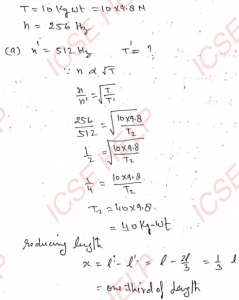 T = 10 Kgwt = 10×9.8 N
n = 256 Hz
(a) n' = 512 Hz T' = ?
∵ n ∝ √T
n/n' = √(T/T')
256/512 = √(10×9.8/T₂)
1/2 = √(10×9.8/T₂)
1/4 = 10×9.8/T₂
T₂ = 40×9.8
= 40 Kg-wt
reducing length
x = l - l' = l - 2l/3 = 1/3 l
= one third of length
ICSE HELP
ICSE HELP
ICSE HELP